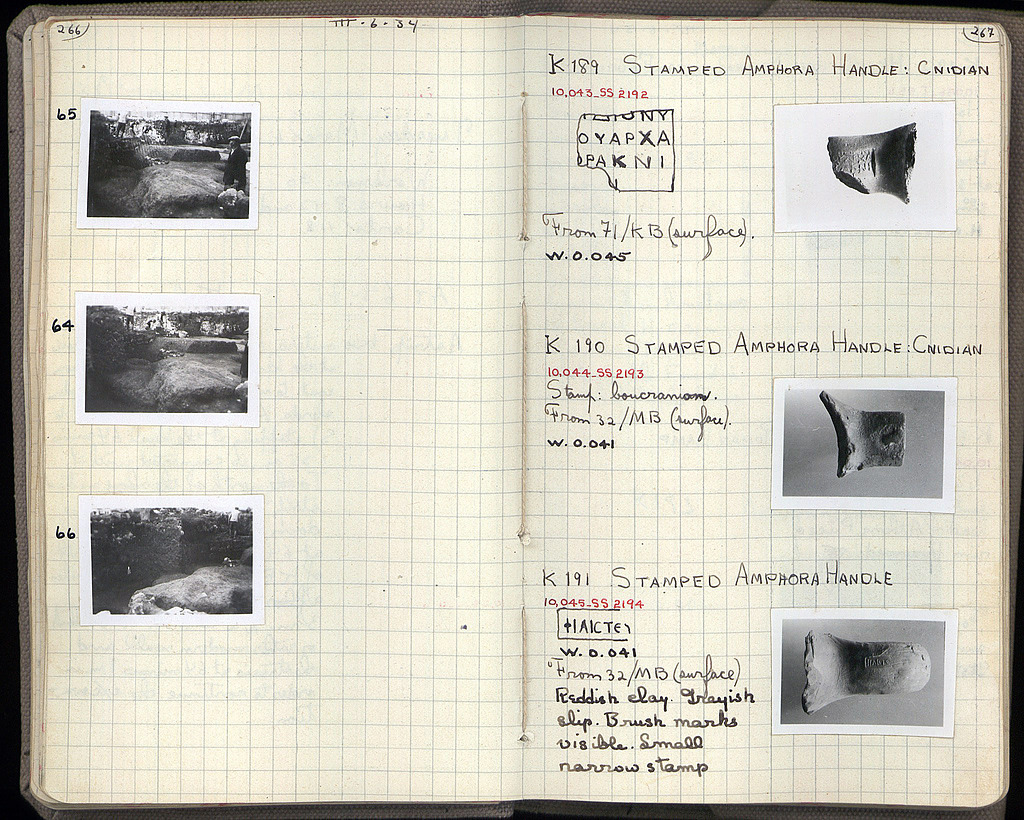 266
III-6-34
65
64
66
267
K 189 STAMPED AMPHORA HANDLE: CNIDIAN
10,043-SS 2192
ΟΥΑΡΧΑ
ΟΡΑΚΝΙ
From 71/KB (surface).
W. 0.045
K 190 STAMPED AMPHORA HANDLE: CNIDIAN
10,044-SS 2193
Stamp: boucranion.
From 32/MB (surface).
W. 0.041
K 191 STAMPED AMPHORA HANDLE
10,045-SS 2194
W. 0.041
From 32/MB (surface)
Reddish clay. Grayish
slip. Brush marks
visible. Small
narrow stamp